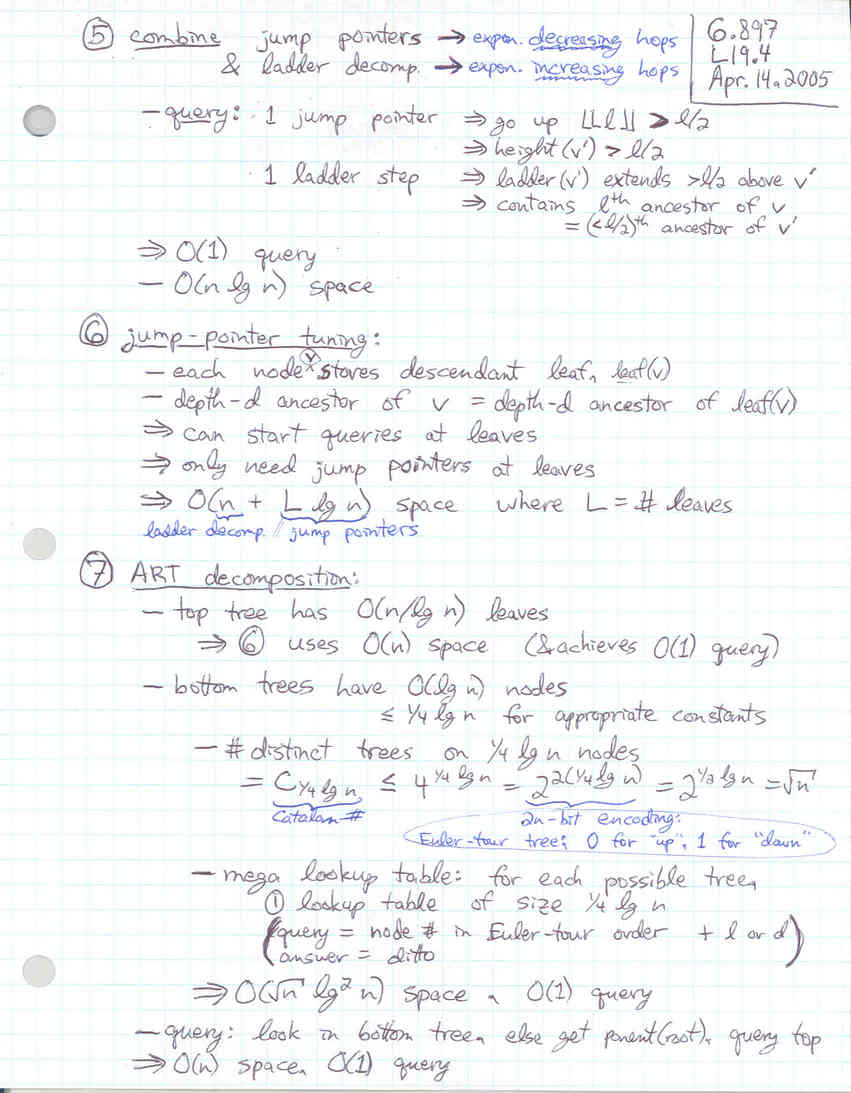 ⑤ combine jump pointers → expon. decreasing hops
& ladder decomp. → expon. increasing hops
6.897
L19.4
Apr. 14, 2005
- query: 1 jump pointer ⇒ go up ⌊⌊l⌋⌋ > l/2
⇒ height(v') > l/2
1 ladder step ⇒ ladder(v') extends >l/2 above v'
⇒ contains lth ancestor of v
= (<l/2)th ancestor of v'
⇒ O(1) query
- O(n lg n) space
⑥ jump-pointer tuning:
- each node v stores descendant leaf, leaf(v)
- depth-d ancestor of v = depth-d ancestor of leaf(v)
⇒ can start queries at leaves
⇒ only need jump pointers at leaves
⇒ O(n + L lg n) space where L = # leaves
ladder decomp. // jump pointers
⑦ ART decomposition:
- top tree has O(n/lg n) leaves
⇒ ⑥ uses O(n) space (& achieves O(1) query)
- bottom trees have O(lg n) nodes
≤ 1/4 lg n for appropriate constants
- # distinct trees on 1/4 lg n nodes
= C_{1/4 lg n} ≤ 4^{1/4 lg n} = 2^{2(1/4 lg n)} = 2^{1/2 lg n} = √n
Catalan # 2n-bit encoding:
Euler-tour tree; 0 for "up", 1 for "down"
- mega lookup table: for each possible tree,
① lookup table of size 1/4 lg n
(query = node # in Euler-tour order + l or d)
(answer = ditto
⇒ O(√n lg² n) space, O(1) query
- query: look in bottom tree, else get parent(root), query top
⇒ O(n) space, O(1) query